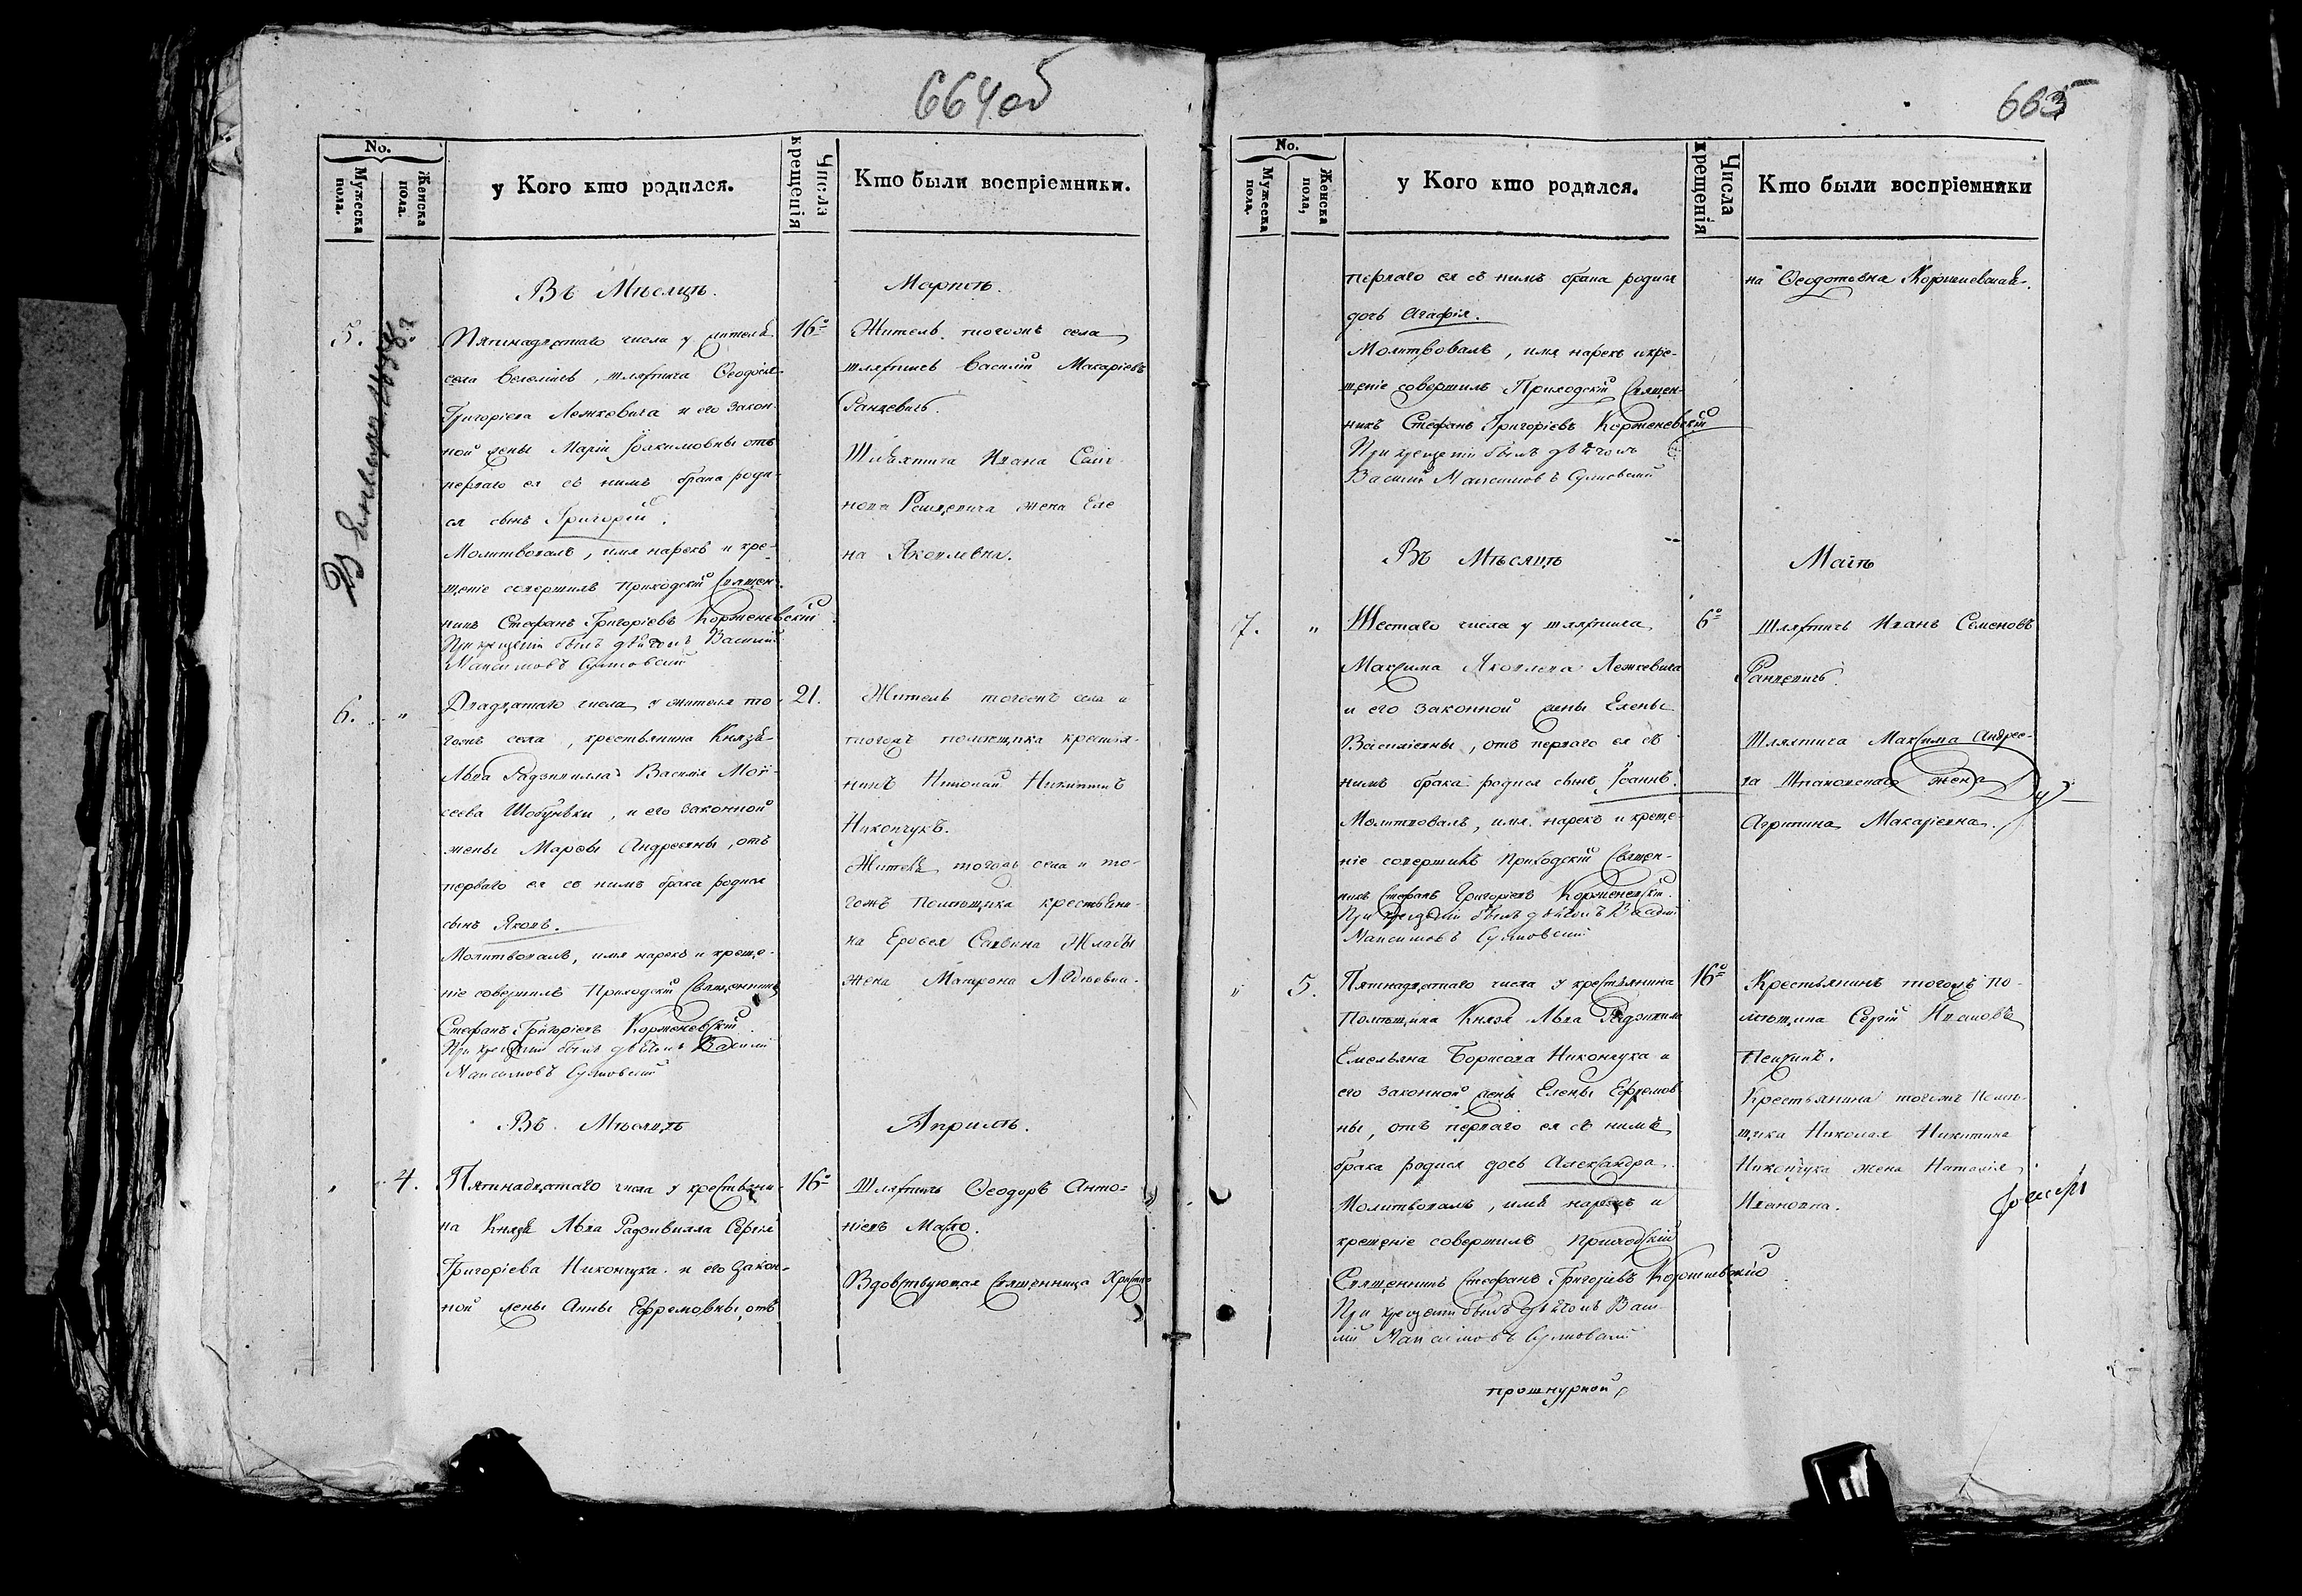 664 об
No.
Мужеска пола.
Женска пола.
у Кого кто родился.
Числа крещенія
Кто были воспріемники.
Въ Мѣсяцѣ.
Мартѣ.
5.
Пятнадцатаго числа у жителя
села Велемичъ, шляхтича Ѳеодосія
Григоріева Лежкевича и его закон-
ной жены Маріи Іоакимовны отъ
перваго ея съ нимъ брака роди-
ся сынъ Григорій.
Молитвовалъ, имя нарекъ и кре-
щеніе совершилъ Приходскій Священ-
никъ Стефанъ Григоріевъ Корженевскій
При крещеніи былъ дьячомъ Василій
Максимовъ
16
Житель тогожъ села
шляхтичъ Василій Макаріевъ
Ранцевичъ.
Шляхтича Ивана Семе-
нова жена Еле
на Яковлевна.
6.
Двадцатаго числа у жителя то-
гожъ села, крестьянина Князя
Льва Радзивилла Василія Мои-
сеева и его законной
жены Марѳы Андреевны, отъ
перваго ея съ нимъ брака родися
сынъ Яковъ.
Молитвовалъ, имя нарекъ и креще-
ніе совершилъ Приходскій Священникъ
Стефанъ Григоріевъ Корженевскій.
При крещеніи былъ дьячомъ Василій
Максимовъ
21.
Житель тогожъ села и
тогожъ помѣщика крестья-
нинъ Николай Никитинъ
Никончукъ.
Житель тогожъ села и то-
гожъ помѣщика крестьяни-
на Ероѳея Саввина
жена Матрона
Въ Мѣсяцѣ
Априлѣ.
4.
Пятнадцатаго числа у крестьяни-
на Князя Льва Радзивилла Сергія
Григоріева Никончука и его закон-
ной жены Анны Ефремовны, отъ
16
Шляхтичъ Ѳеодоръ Анто-
ніевъ
Вдовствующая Священница Христи
665
No.
Мужеска пола.
Женска пола,
у Кого кто родился.
Числа крещенія
Кто были воспріемники
перваго ея съ нимъ брака родися
дочь Агафія.
Молитвовалъ, имя нарекъ и кре-
щеніе совершилъ Приходскій Священ-
никъ Стефанъ Григоріевъ Корженевскій
При крещеніи былъ дьячомъ
Василій Максимовъ
на Ѳеодотовна Корженевская.
Въ Мѣсяцѣ
Маіѣ
7.
Шестаго числа у шляхтича
Максима Яковлева Лежкевича
и его законной жены Елены
Василіевны, отъ перваго ея съ
нимъ брака родися сынъ Іоаннъ.
Молитвовалъ, имя нарекъ и креще-
ніе совершилъ Приходскій Священ-
никъ Стефанъ Григоріевъ Корженевскій.
При крещеніи былъ дьячомъ Василій
Максимовъ
6
Шляхтичъ Иванъ Семеновъ
Ранцевичъ.
Шляхтича Максима Андрее-
ва жена
Агрипина Макаріевна.
5.
Пятнадцатаго числа у крестьянина
Помѣщика Князя Льва Радзивила
Емельяна Борисова Никончука и
его законной жены Елены Ефремов
ны, отъ перваго ея съ нимъ
брака родися дочь Александра.
Молитвовалъ, имя нарекъ и
крещеніе совершилъ Приходскій
Священникъ Стефанъ Григоріевъ Корженевскій
При крещеніи былъ дьячомъ Васи-
лій Максимовъ
16
Крестьянинъ тогожъ по-
мѣщика Сергій Ивановъ
Крестьянина тогожъ помѣ-
щика Николая Никитина
Никончука жена Наталія
Ивановна.
прошнурной